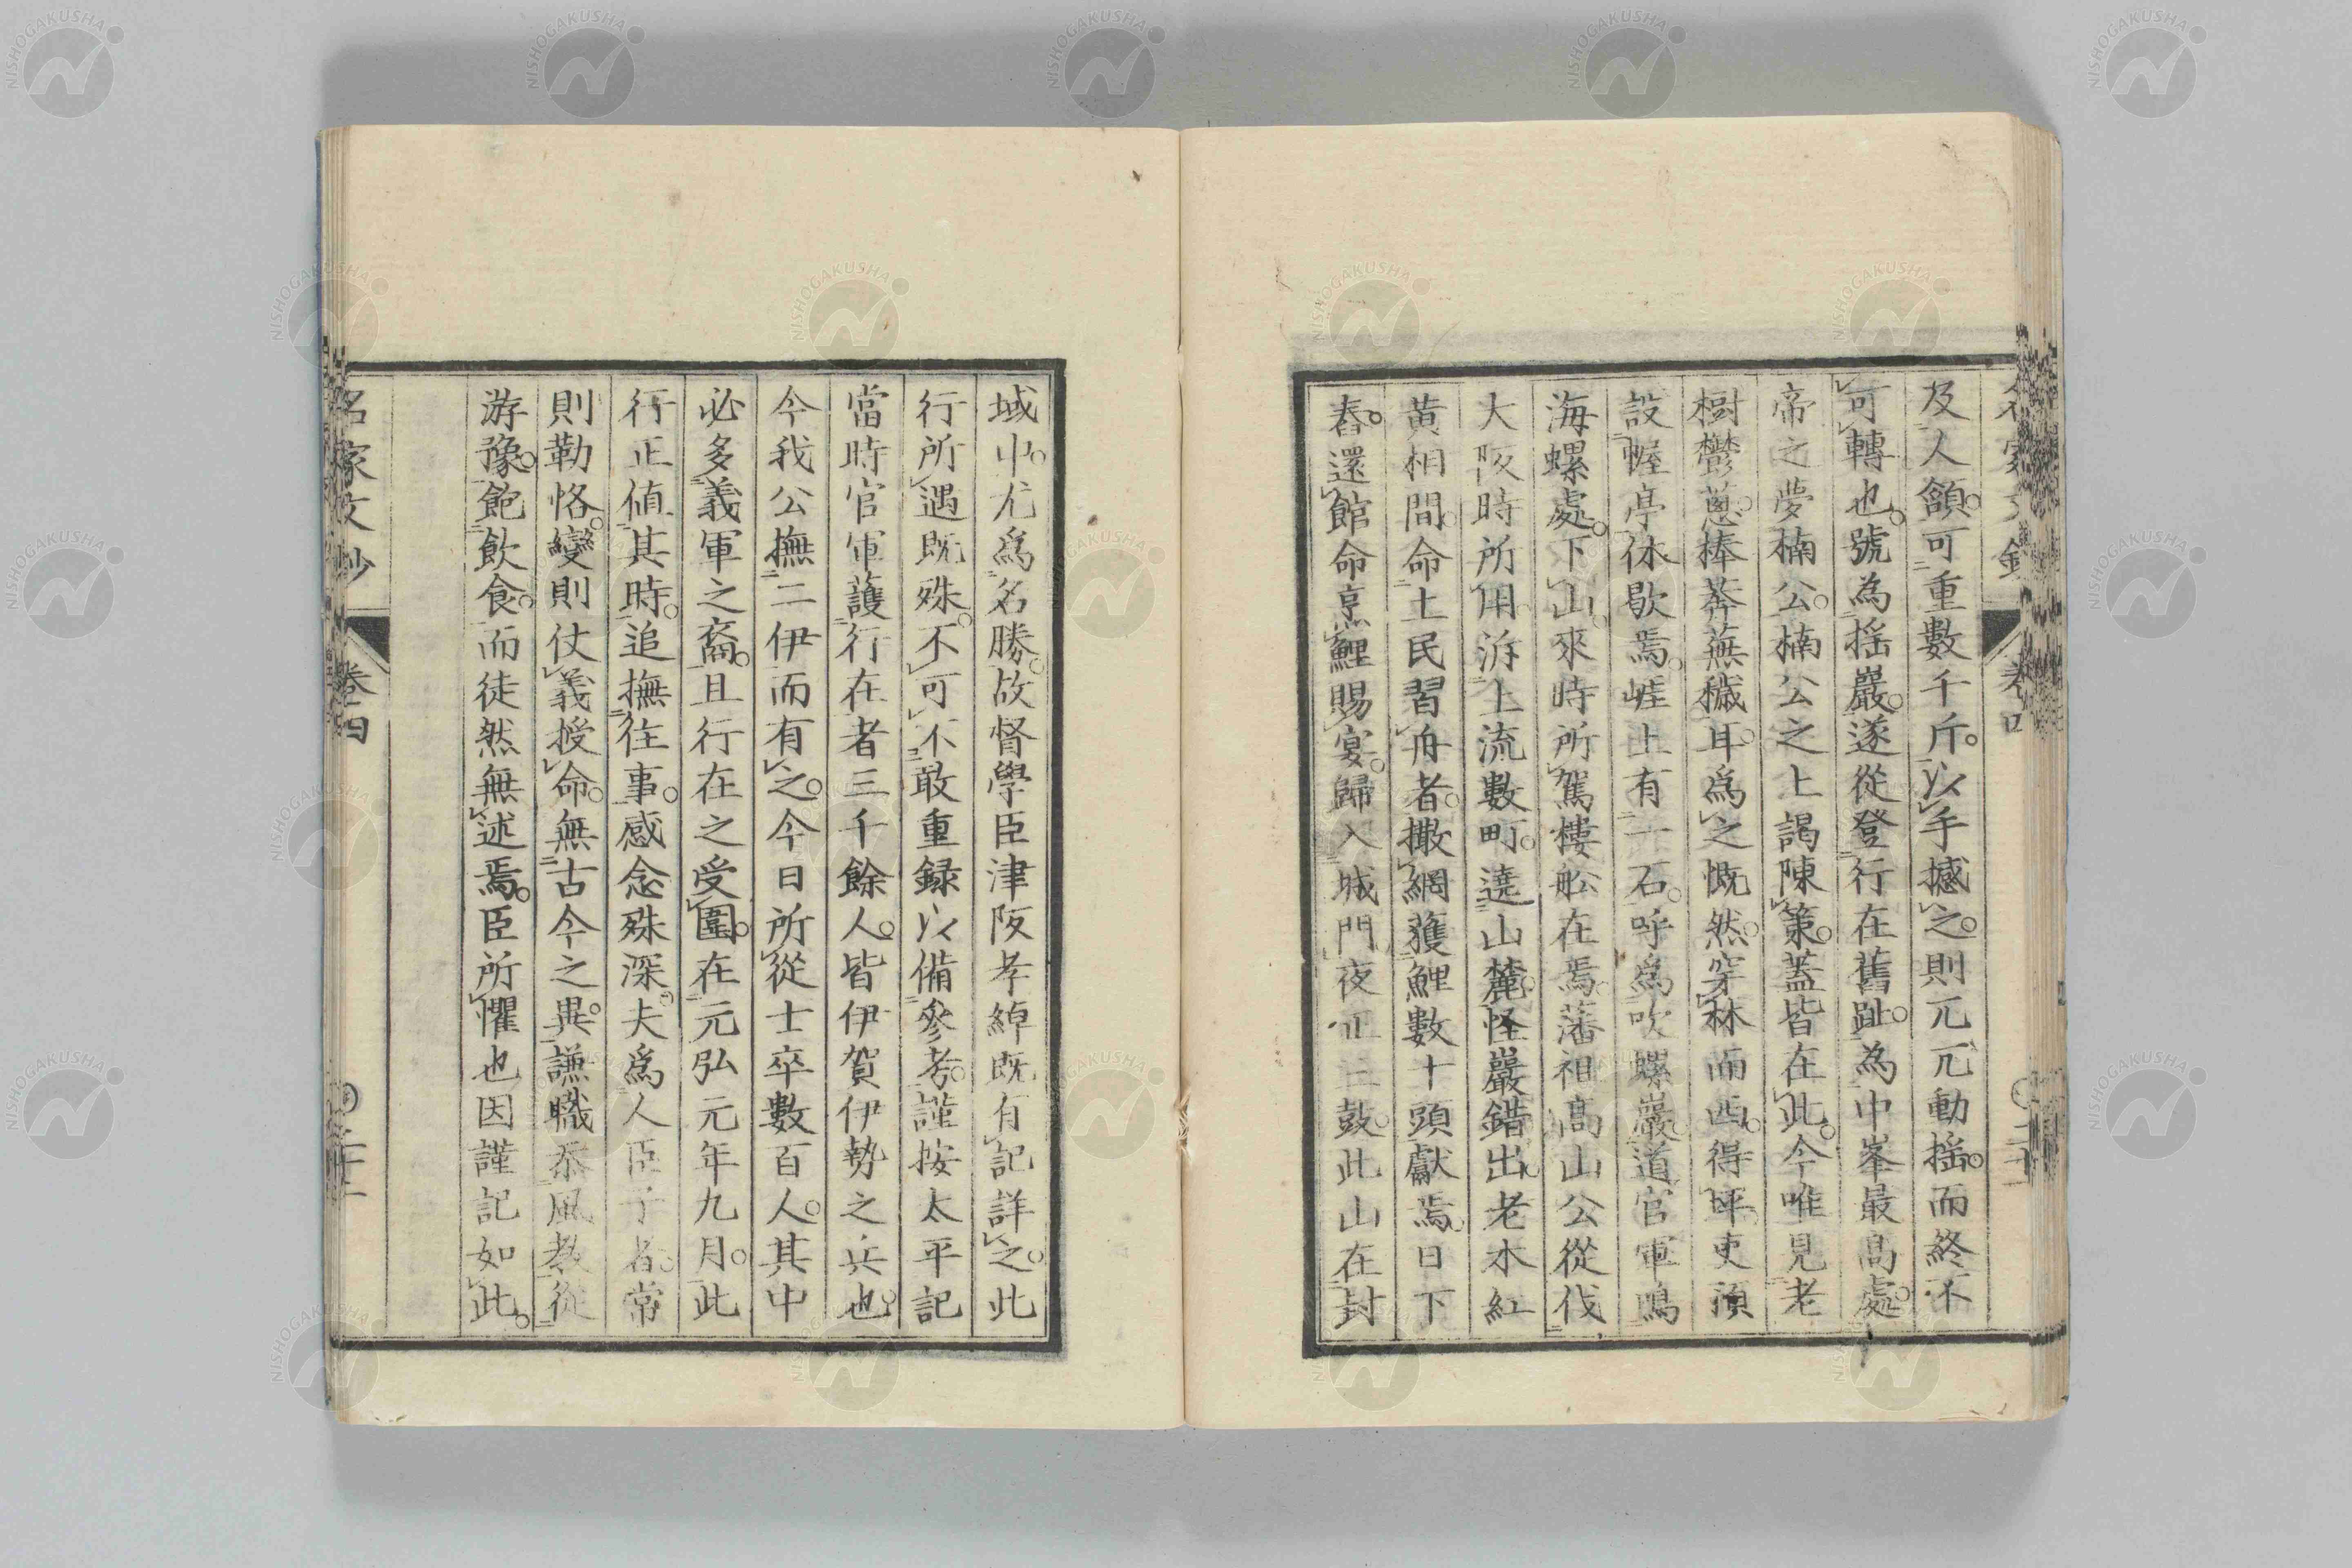 及人額。可重數千斤。以手撼之。則兀兀動搖。而終不
可轉也。號為搖巖。遂從登行在舊趾。為中峯最高處。
帝之夢楠公。楠公之上謁陳策。蓋皆在此。今唯見老
樹鬱蔥。榛莽蕪穢耳。爲之慨然。穿林而西。得坪。吏須
設幄亭休歇焉。崕上有一石。呼爲吹螺巖。道官軍鳴
海螺處。下山。來時所駕樓船在焉。藩祖高山公從伐
大阪時所用。泝上流數町。遶山麓。怪巖錯出。老木紅
黄相間。命土民習舟者。撒網獲鯉數十頭獻焉。日下
舂。還館命烹鯉賜宴。歸入城門夜正三鼓。此山在封
域中。尤爲名勝。故督學臣津阪孝綽既有記詳之。此
行所遇既殊。不可不敢重録以備參考。謹按太平記
當時官軍護行在者三千餘人。皆伊賀伊勢之兵也。
今我公撫二伊而有之。今日所從士卒數百人。其中
必多義軍之裔。且行在之受圍。在元弘元年九月。此
行正値其時。追撫往事。感念殊深。夫爲人臣子者。常
則勤恪。變則仗義授命。無古今之異。謙職忝風教。從
游豫。飽飲食。而徒然無述焉。臣所懼也因謹記如此。
名家文抄
卷四